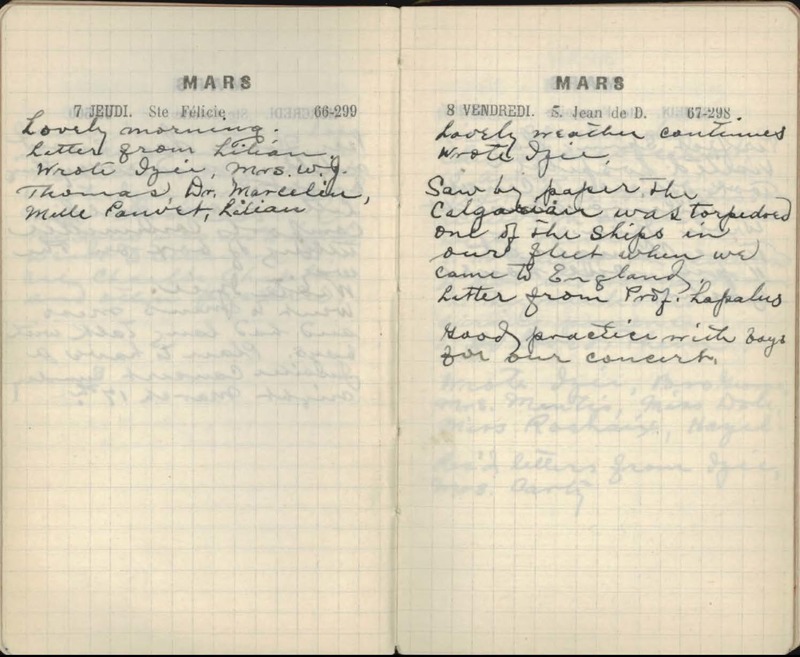 MARS
7 JEUDI. Ste Félicie 66-299
Lovely morning.
Letter from Lilian
Wrote Izie, Mrs. W.J.
Thomas, Dr. Marcelin,
Melle Pauvet, Lilian
MARS
8 VENDREDI. S. Jean de D. 67-298
Lovely weather continues
Wrote Izie.
Saw by paper the
Calgarian was torpedoed
one of the ships in
our fleet when we
came to England.
Letter from Prof. Lapalus
Good practice with boys
for our concert.